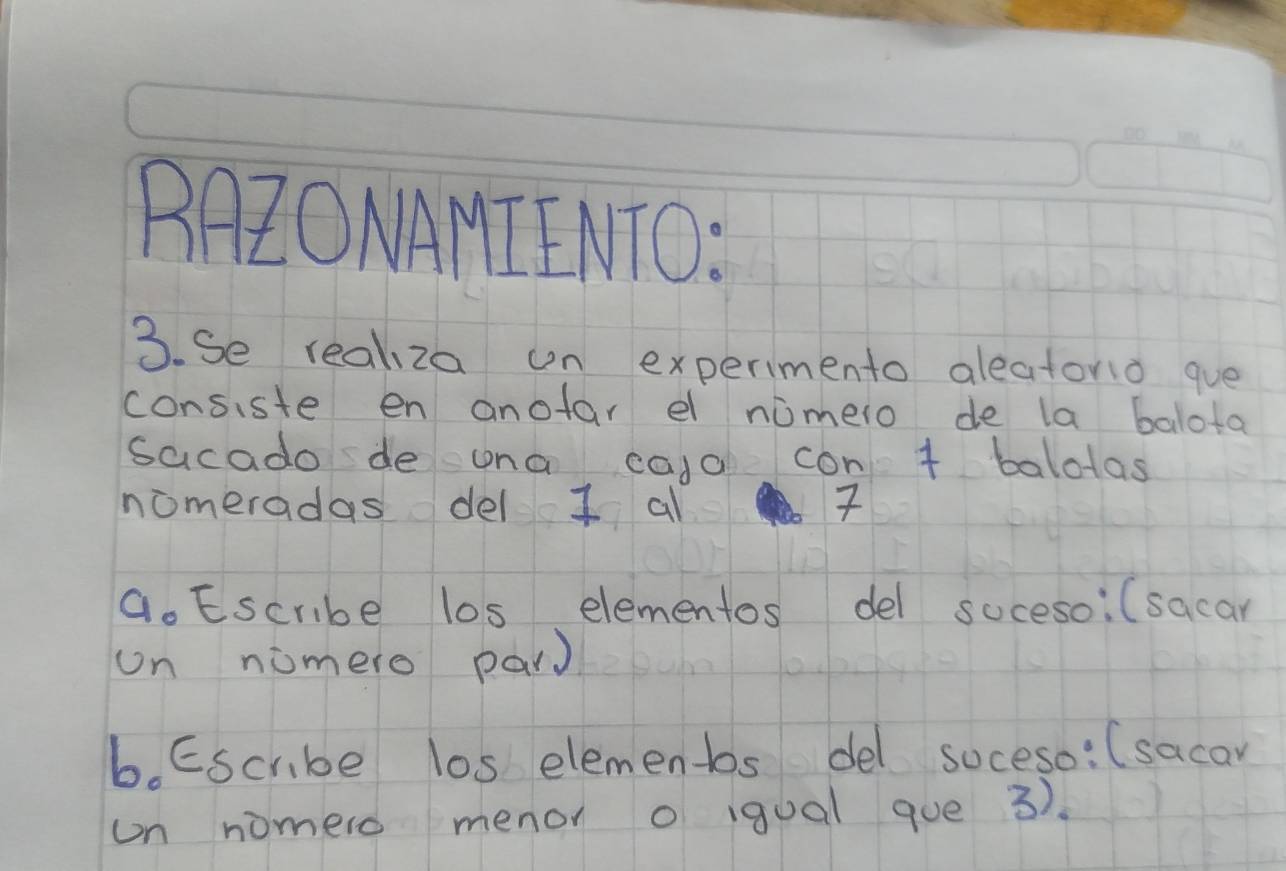 RAZONAMIENTO:
3. Se realiza un experimento aleatorio que
consiste en anotar el número de la balota
sacado de una caja con 7 balotas
númeradas del 1 al 7
a. Escribe los elementos del suceso: (sacar
un número par)
b. Escribe los elementos del suceso: (sacar
un número menor o igual que 3).